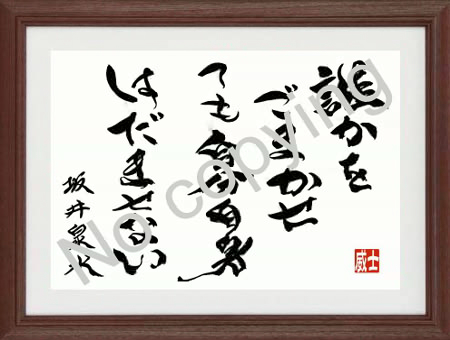 誰かを
ごまかせ
ても自分自身
はだませない
坂井泉水
威士
No copying